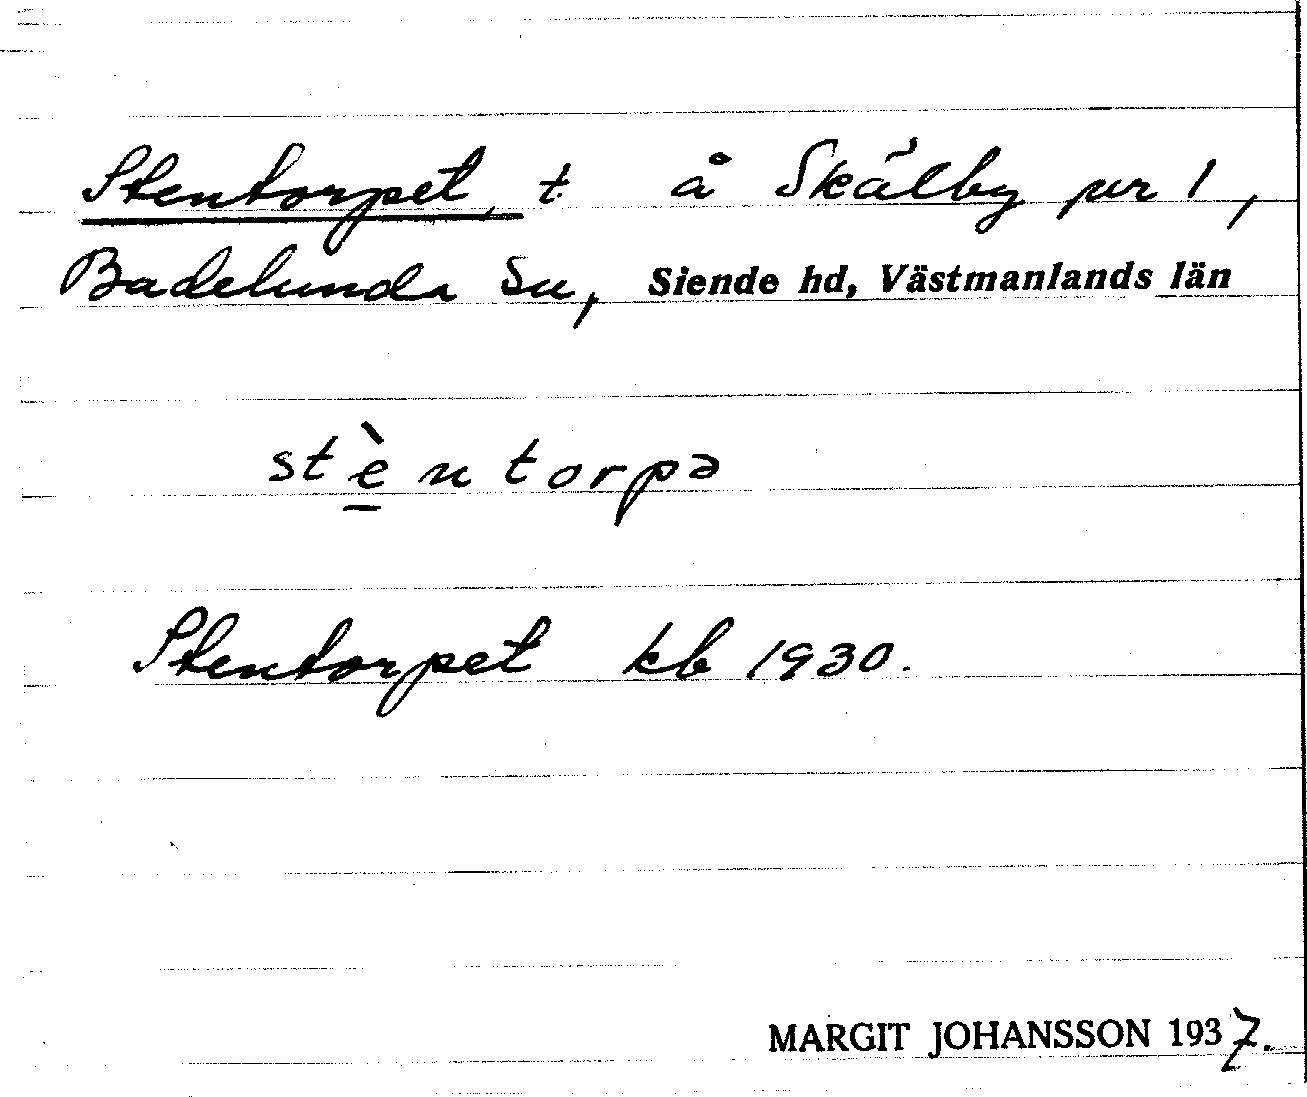 Stentorpet, t. å Skälby nr 1,
Badelunda Sn, Siende hd, Västmanlands län
stè̱n torpə
Stentorpet kb 1930.
MARGIT JOHANSSON 1937.